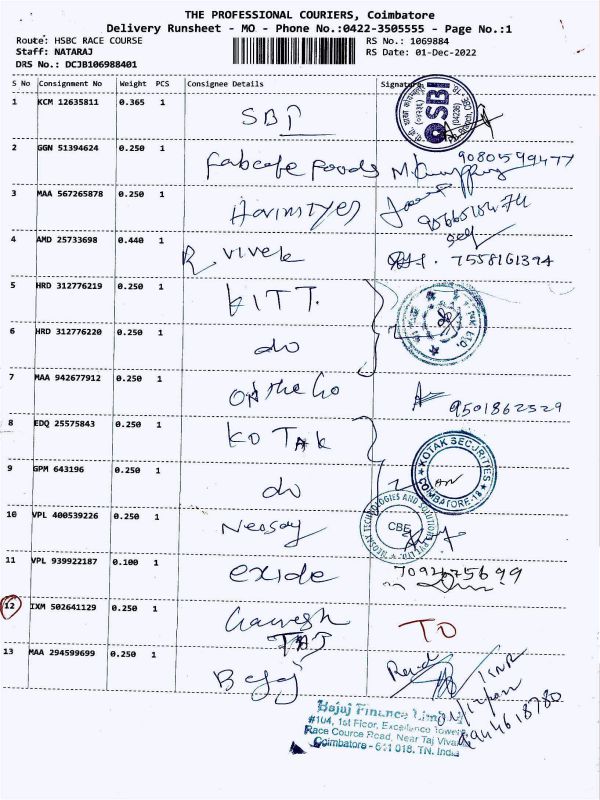 THE PROFESSIONAL COURIERS, Coimbatore
Delivery Runsheet - MO - Phone No.:0422-3505555 - Page No.:1
Route: HSBC RACE COURSE
RS No.: 1069884
Staff: NATARAJ
RS Date: 01-Dec-2022
DRS No.: DCJB106988401
S No Consignment No Weight PCS Consignee Details Signature
1 KCM 12635811 0.365 1 SBI
SBI (04236)
2 GGN 51394624 0.250 1 Fabcafe foods 9080599477
3 MAA 567265878 0.250 1
4 AMD 25733698 0.440 1 R Vivek 7558161394
5 HRD 312776219 0.250 1 KITT.
6 HRD 312776220 0.250 1 do
7 MAA 942677912 0.250 1 On the Go 9501862529
8 EDQ 25575843 0.250 1 KOTAK
KOTAK SECURITIES
COIMBATORE-18
9 GPM 643196 0.250 1 do
10 VPL 400539226 0.250 1 Neosay
NEOSAY TECHNOLOGIES AND SOLUTIONS PVT LTD
CBE
11 VPL 939922187 0.100 1 exide 7092675699
12 IXM 502641129 0.250 1 Ganesh TD
TAJ
13 MAA 294599699 0.250 1 Bajaj
9944618780
Bajaj Finance Limited
#104, 1st Floor, Excellance Towers
Race Cource Road, Near Taj Vivanta
Coimbatore - 641 018. TN. India